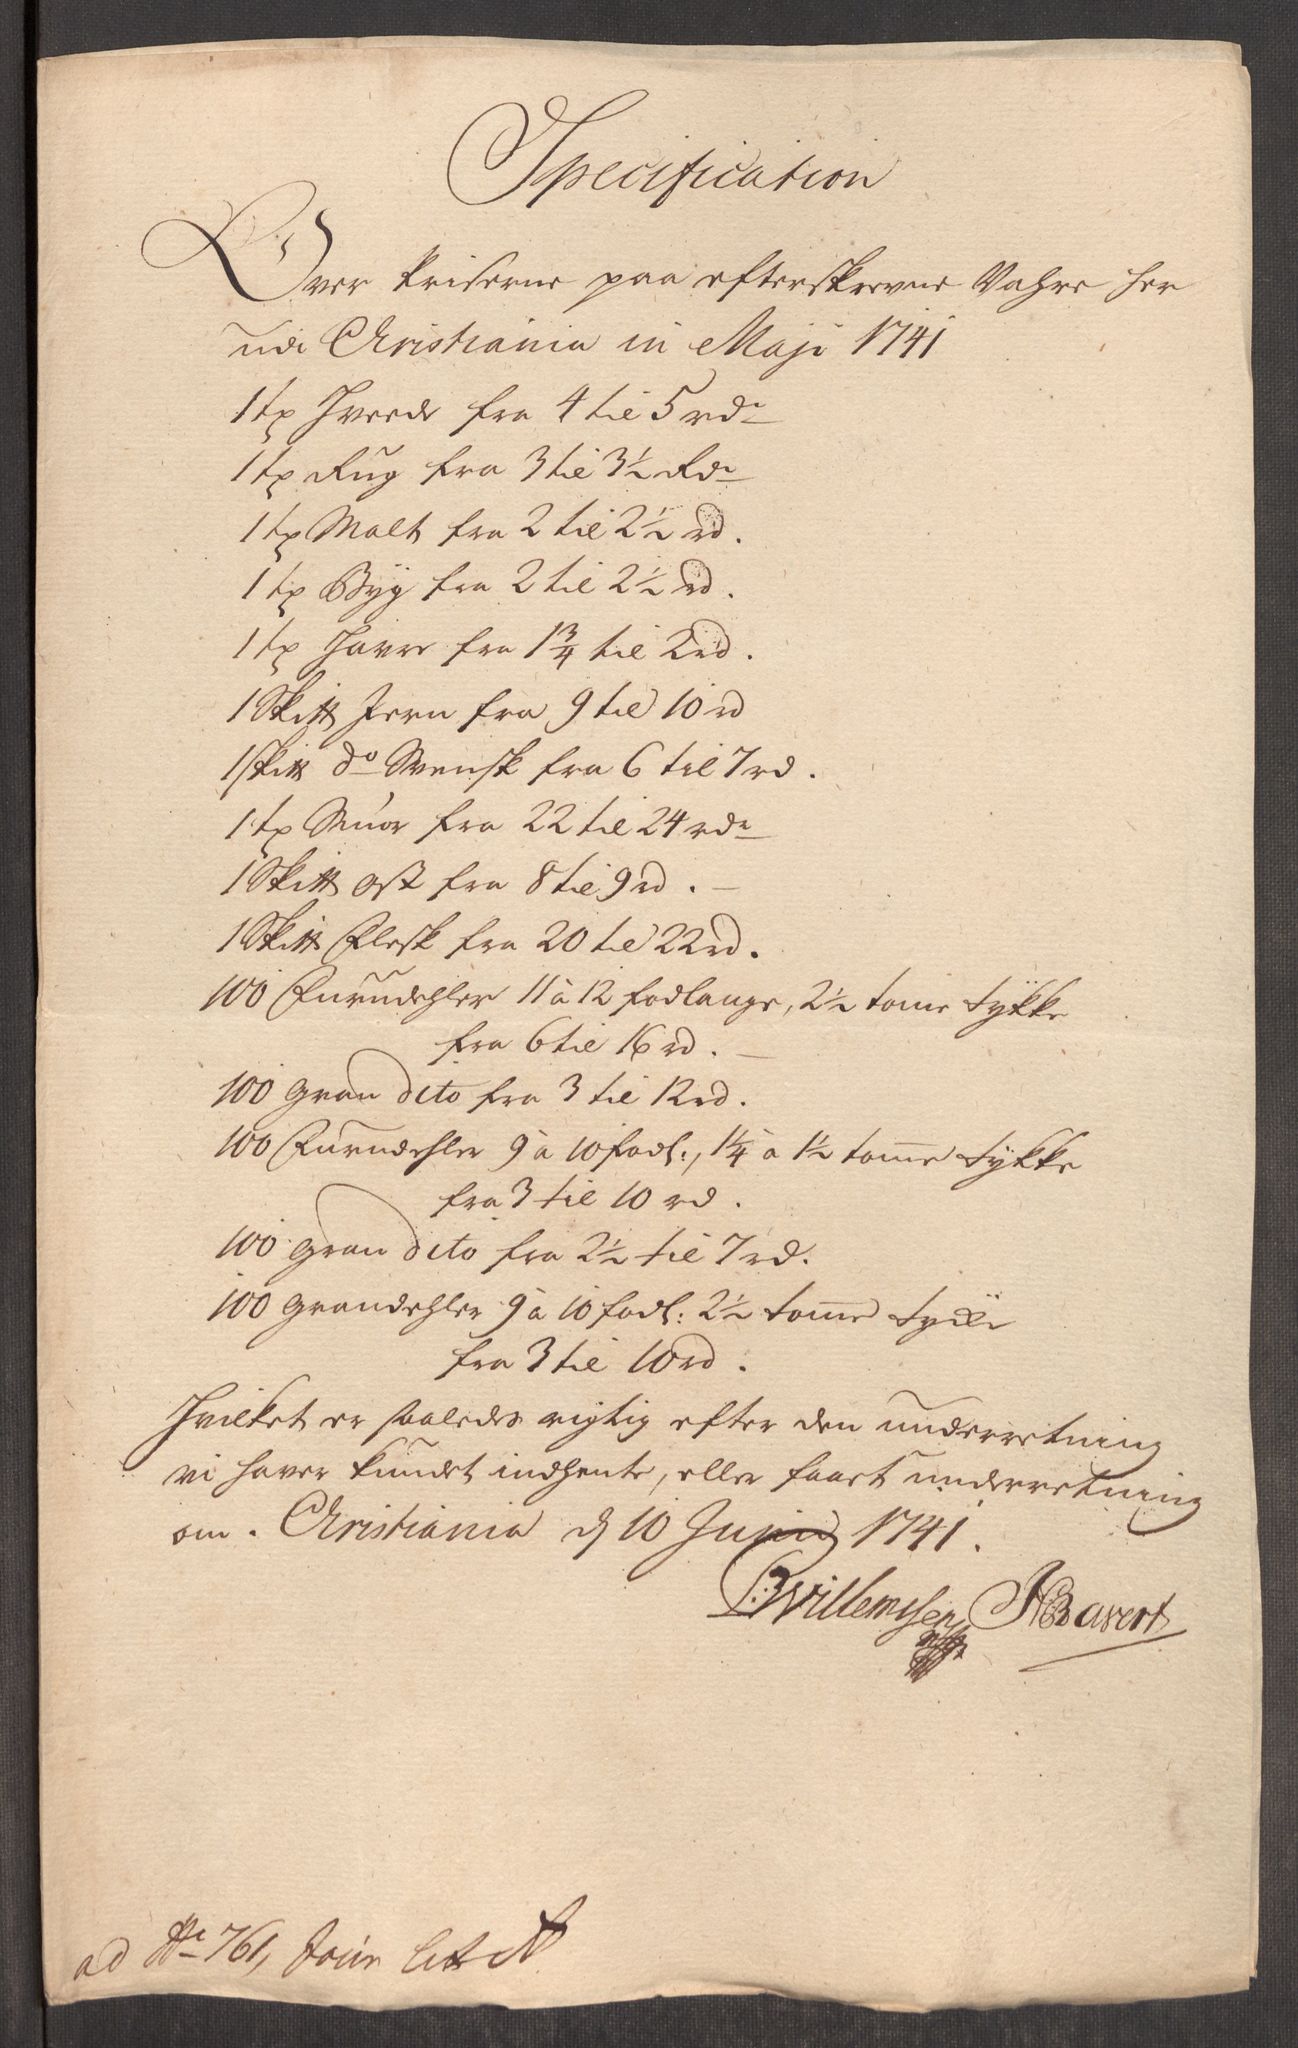 Specification
Over Priserne paa efterskrevne Vahre her
udi Christiania in Maji 1741
1 tp Hveede fra 4 til 5 rdr
1 tp Rug fra 3 til 3½ Rdr
1 tp Malt fra 2 til 2½ rd.
1 tp Byg fra 2 til 2½ rd.
1 tp Havre fra 1¾ til 2 rd.
1 Skltt Jern fra 9 til 10 rd
1 skltt do Svensk fra 6 til 7 rd.
1 tp Smør fra 22 til 24 rdr
1 Skltt Ost fra 8 til 9 rd. —
1 Skltt Flesk fra 20 til 22 rd.
100 Furudehler 11 à 12 fodlange, 2½ tome tykke
fra 6 til 16 rd. —
100 gran dito fra 3 til 12 rd.
100 Furudehler 9 à 10 fodl:, 1¼ a 1½ tomme tykke
fra 3 til 10 rd.
100 gran dito fra 2½ til 7 rd.
100 grandehler 9 à 10 fodl: 2½ tomme tycke
fra 3 til 10 rd.
Hvilket er saaledes rigtig efter den underretning
vi haver kundet indhente, eller faaet underretning
om. Christiania d 10 Junij 1741.
Willemssen HBavert
ad No 761, Jour Litt A